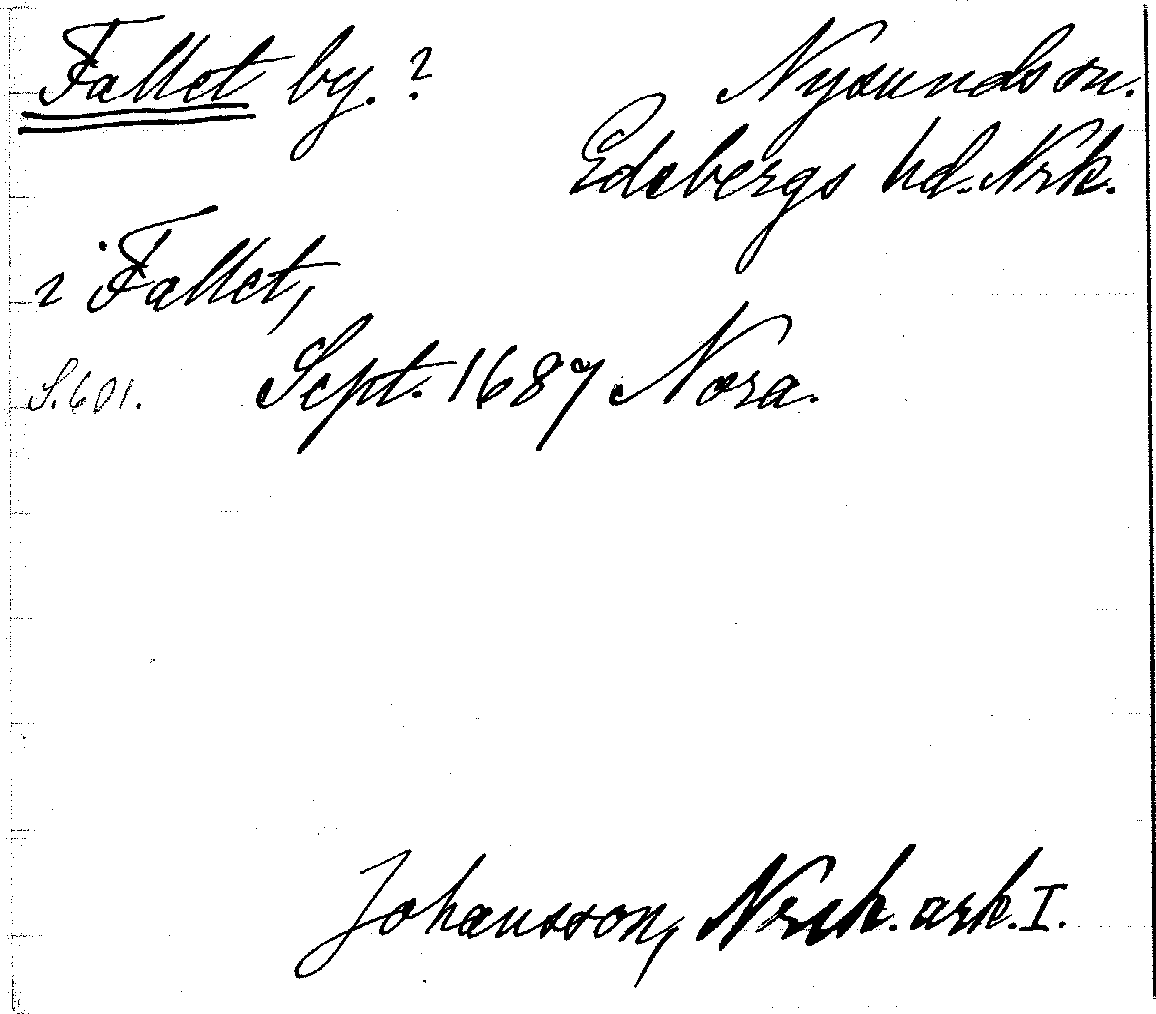 Fallet by. ? Nysunds sn.
Edsbergs hd. Nrk.
i Fallet,
S. 601. Sept. 1687 Nora.
Johansson, Nrck. ark. I.